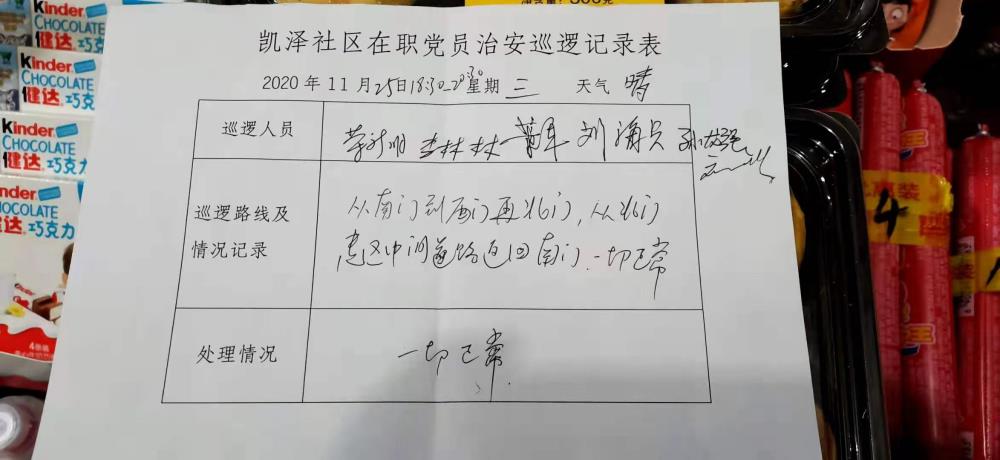 凯泽社区在职党员治安巡逻记录表
2020年11月25日18:30-20:30星期 三 天气 晴
巡逻人员
李林林 刘海兵
巡逻路线及
情况记录
从南门到西门再北门,从北门
中间道路返回南门.一切正常
处理情况
一切正常
Kinder
CHOCOLATE
健达 巧克力
Kinder
CHOCOLATE
健达 巧克
Kinder
CHOCOLATE
健达 巧克
nder
OCOLATE
达 巧克力
4条装
4